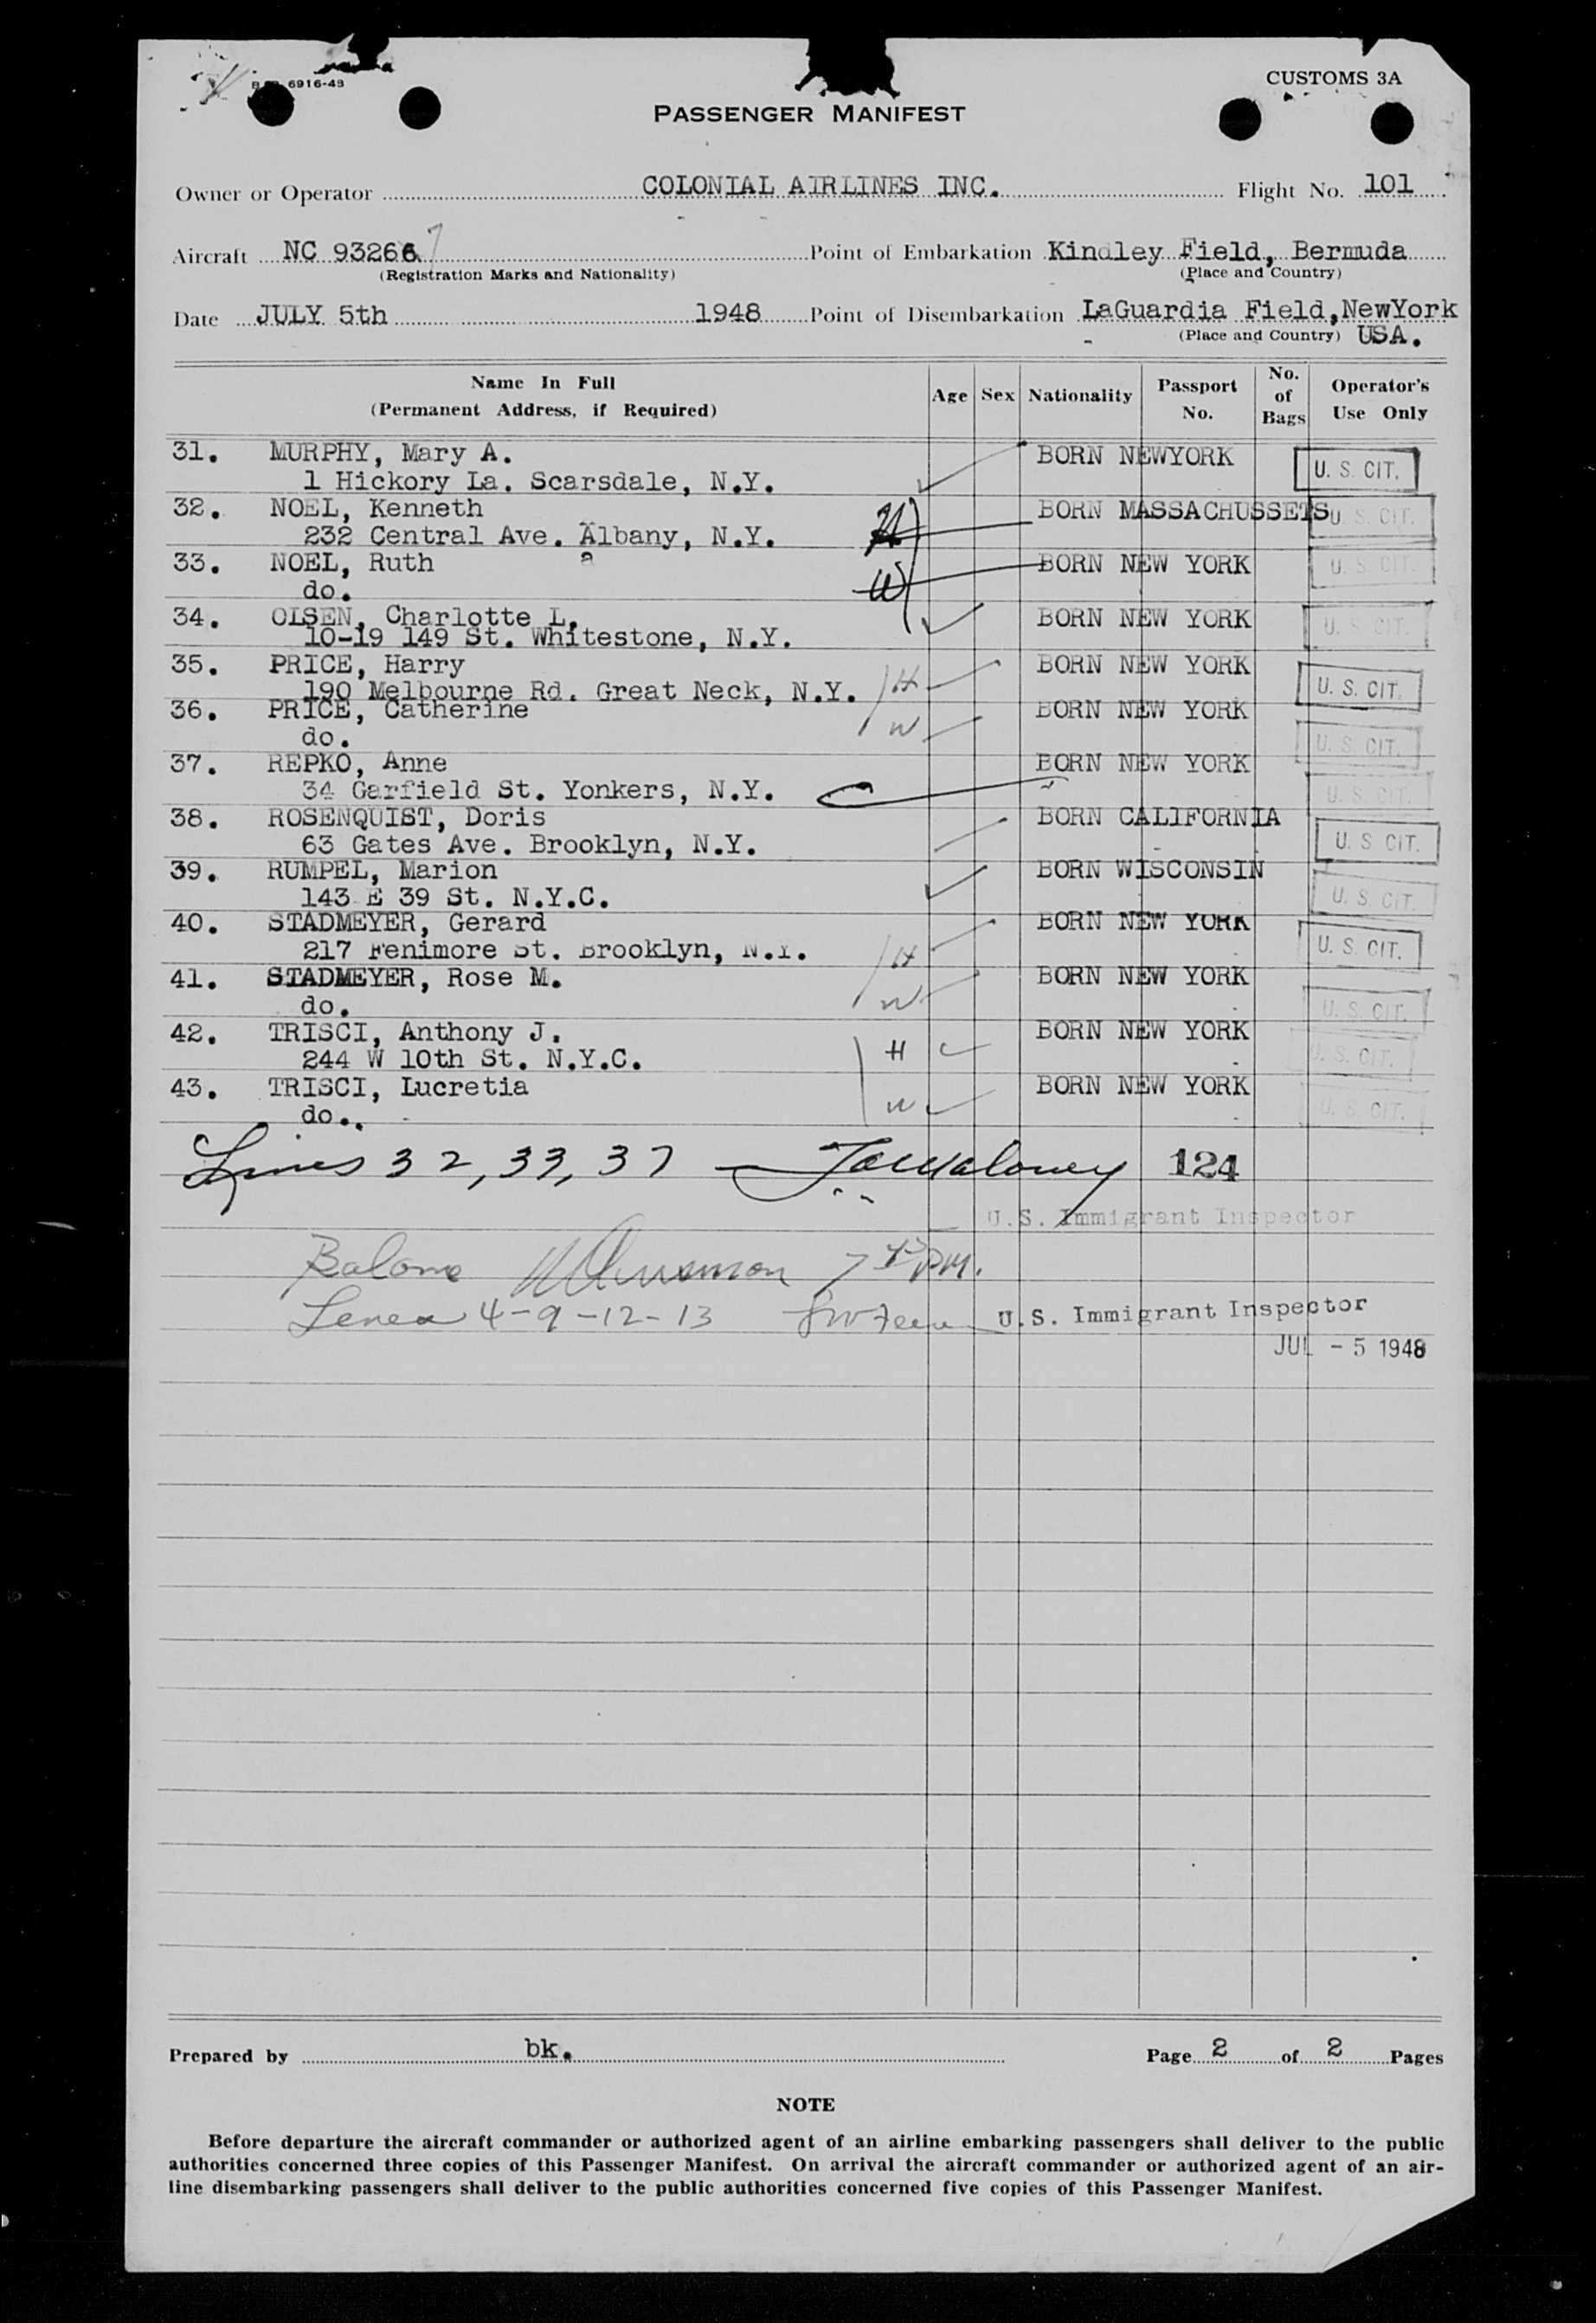 6916-48
CUSTOMS 3A
PASSENGER MANIFEST
Owner or Operator COLONIAL AIRLINES INC. Flight No. 101
Aircraft NC 93266 7 Point of Embarkation Kindley Field, Bermuda
(Registration Marks and Nationality) (Place and Country)
Date JULY 5th 1948 Point of Disembarkation LaGuardia Field, NewYork
(Place and Country) USA.
Name In Full (Permanent Address, if Required) Age Sex Nationality Passport No. No. of Bags Operator's Use Only
31. MURPHY, Mary A. BORN NEWYORK U. S. CIT.
1 Hickory La. Scarsdale, N.Y.
32. NOEL, Kenneth BORN MASSACHUSSETS U. S. CIT.
232 Central Ave. Albany, N.Y. H
33. NOEL, Ruth a BORN NEW YORK U. S. CIT.
do. W
34. OLSEN, Charlotte L. BORN NEW YORK U. S. CIT.
10-19 149 St. Whitestone, N.Y.
35. PRICE, Harry BORN NEW YORK U. S. CIT.
190 Melbourne Rd. Great Neck, N.Y. H
36. PRICE, Catherine BORN NEW YORK U. S. CIT.
do. W
37. REPKO, Anne BORN NEW YORK U. S. CIT.
34 Garfield St. Yonkers, N.Y.
38. ROSENQUIST, Doris BORN CALIFORNIA U. S. CIT.
63 Gates Ave. Brooklyn, N.Y.
39. RUMPEL, Marion BORN WISCONSIN U. S. CIT.
143 E 39 St. N.Y.C.
40. STADMEYER, Gerard BORN NEW YORK U. S. CIT.
217 Fenimore St. Brooklyn, N.Y. H
41. STADMEYER, Rose M. BORN NEW YORK U. S. CIT.
do. W
42. TRISCI, Anthony J. BORN NEW YORK U. S. CIT.
244 W 10th St. N.Y.C. H
43. TRISCI, Lucretia BORN NEW YORK U. S. CIT.
do. W
Lines 32, 33, 37 — Maloney 124
U.S. Immigrant Inspector
7 PM.
4-9-12-13 U.S. Immigrant Inspector
JUL - 5 1948
Prepared by bk. Page 2 of 2 Pages
NOTE
Before departure the aircraft commander or authorized agent of an airline embarking passengers shall deliver to the public
authorities concerned three copies of this Passenger Manifest. On arrival the aircraft commander or authorized agent of an air-
line disembarking passengers shall deliver to the public authorities concerned five copies of this Passenger Manifest.